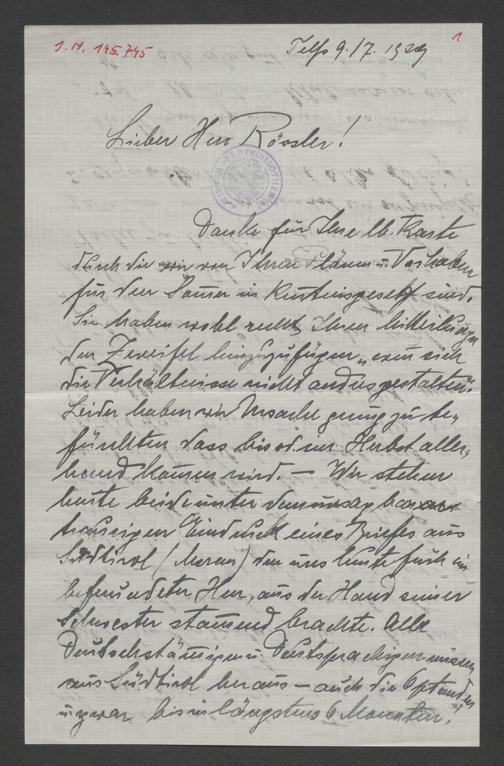 J.N. 145.745
Telfs 9./7. 1939
1
Lieber Herr Rössler!
STADTBIBLIOTHEK
Danke für Ihre lb. Karte
durch die wir von Ihren Plänen u. Vorhaben
für den Sommer in Kenntnis gesetzt sind.
Sie haben wohl recht, Ihren Mitteilungen
den Zweifel hinzuzufügen „wenn sich
die Verhältnisse nicht anders gestalten".
Leider haben wir Ursache genug zu be-
fürchten dass bis in den Herbst aller-
hand kommen wird. — Wir stehen
heute beide unter dem unsagbar
traurigen Eindruck eines Briefes aus
Südtirol (Meran) den uns heute früh ein
befreundeter Herr, aus der Hand seiner
Schwester stammend brachte. Alle
Deutschstämmigen u. Deutschsprachigen müssen
aus Südtirol heraus — auch die Optanten
u. zwar bis in längstens 6 Monaten!